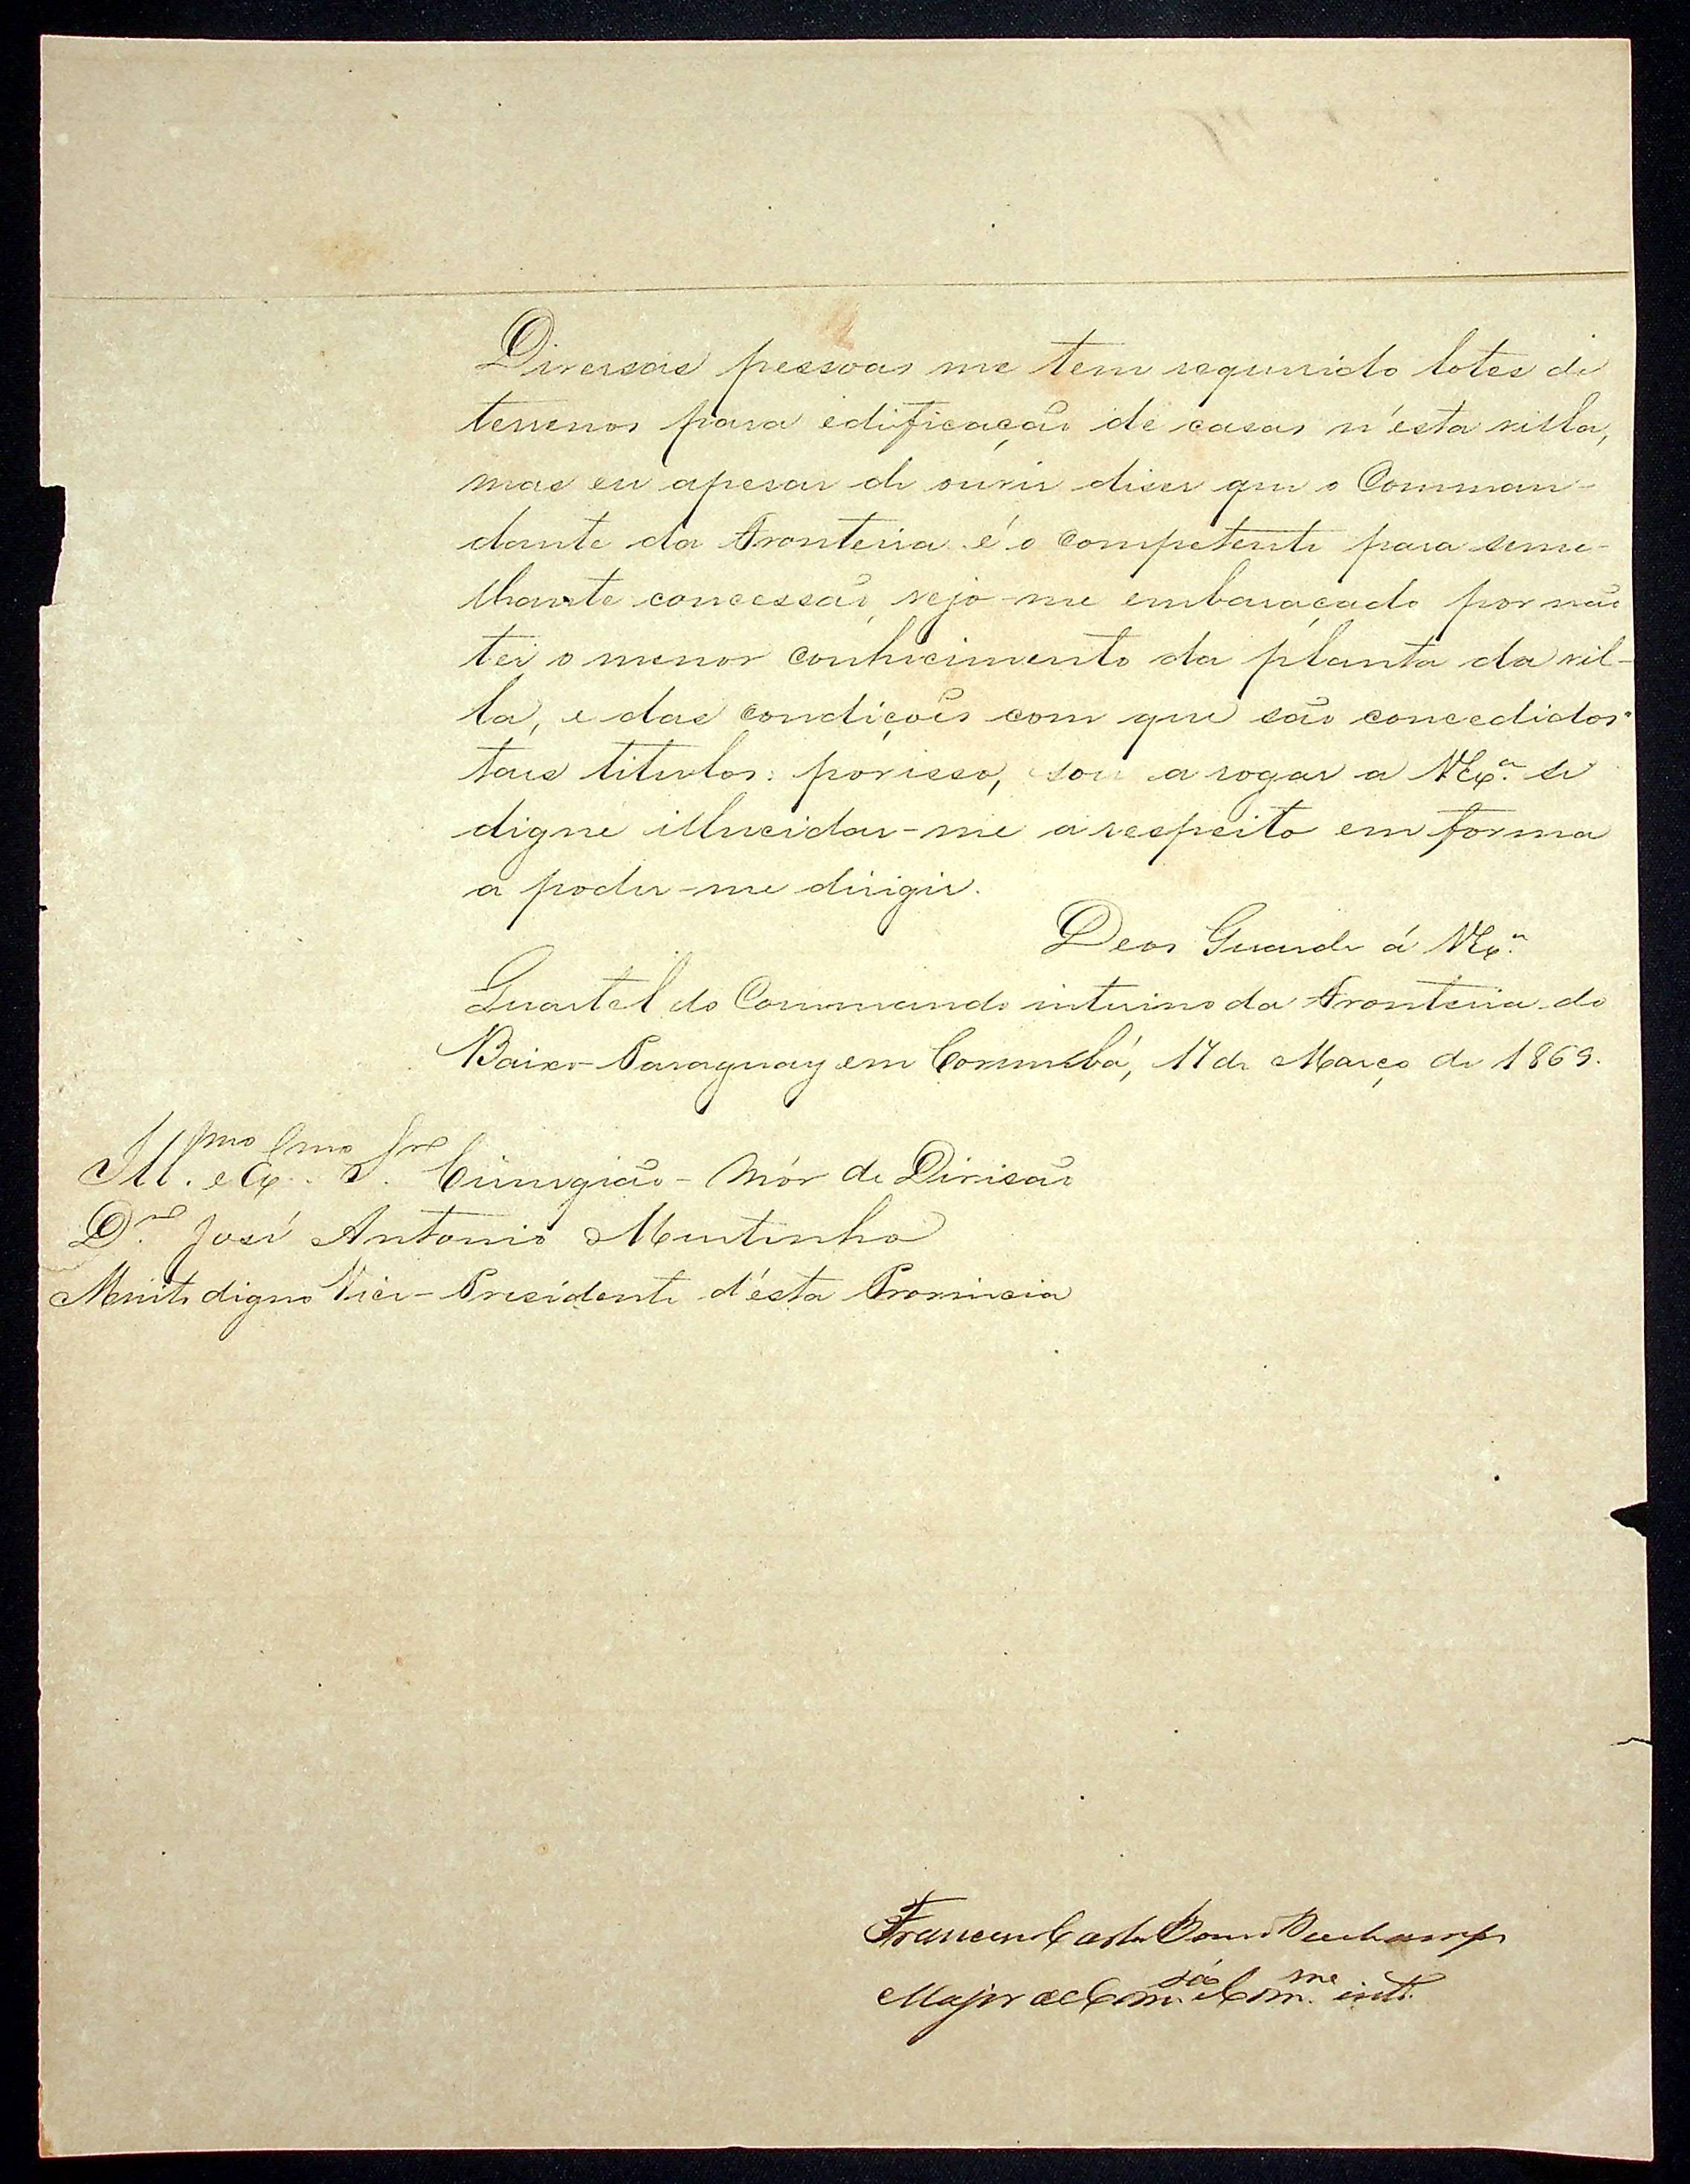 Diversas pessoas me tem requerido lotes de
terrenos para edificação de casas n'ésta villa,
mas eu apesar de ouvir diser que o Comman-
dante da Fronteira é o competente para seme-
lhante concessão, vejo-me embaraçado por não
ter o menor conhecimento da planta da vil-
la, e das condições com que são concedidos
taes titulos: porisso, sou a rogar a VEx.ª se
digne illucidar-me a respeito em forma
a poder-me dirigir.
Deos Guarde á VEx.ª
Quartel do Commando interino da Fronteira do
Baixo-Paraguay em Corumbá, 17 de Março de 1869.
Ill.mo e Ex.mo Sr. Cirurgião-Mór de Divisão
D.r José Antonio Murtinho
Muito digno Vice-Presidente d'ésta Provincia
Major